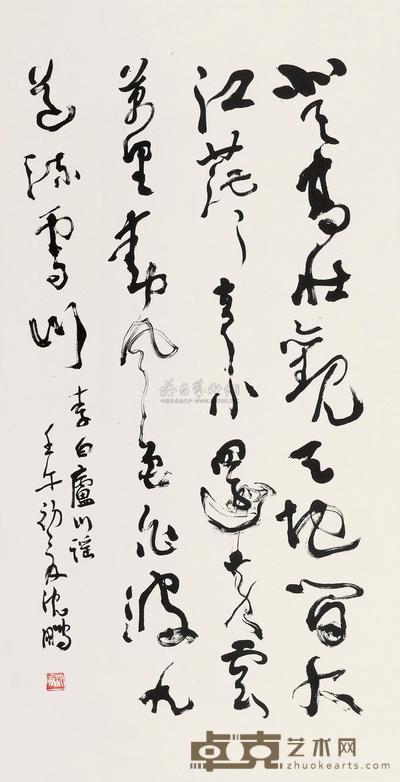 登高壯觀天地間大
江茫〻去不還黃雲
萬里動風色白波九
道流雪山
李白廬山謠
壬午初夏沈鵬
卓克艺术网
zhuokearts.com